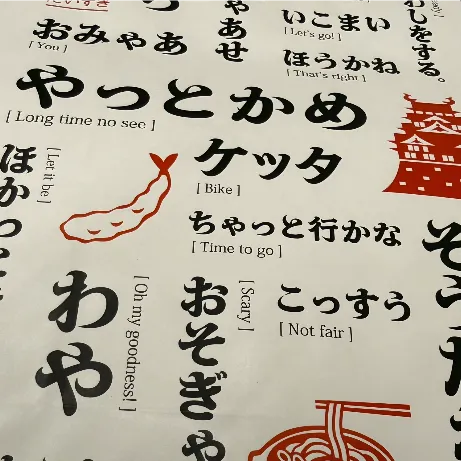 ゃあせ
わしをする。
おみゃあ
[ You ]
いこまい
[ Let's go! ]
ほうかね
[ That's right ]
やっとかめ
[ Long time no see ]
ほかっと
[ Let it be ]
ケッタ
[ Bike ]
ちゃっと行かな
[ Time to go ]
わや
[ Oh my goodness! ]
おそぎゃ
[ Scary ]
こっすう
[ Not fair ]
そうだ